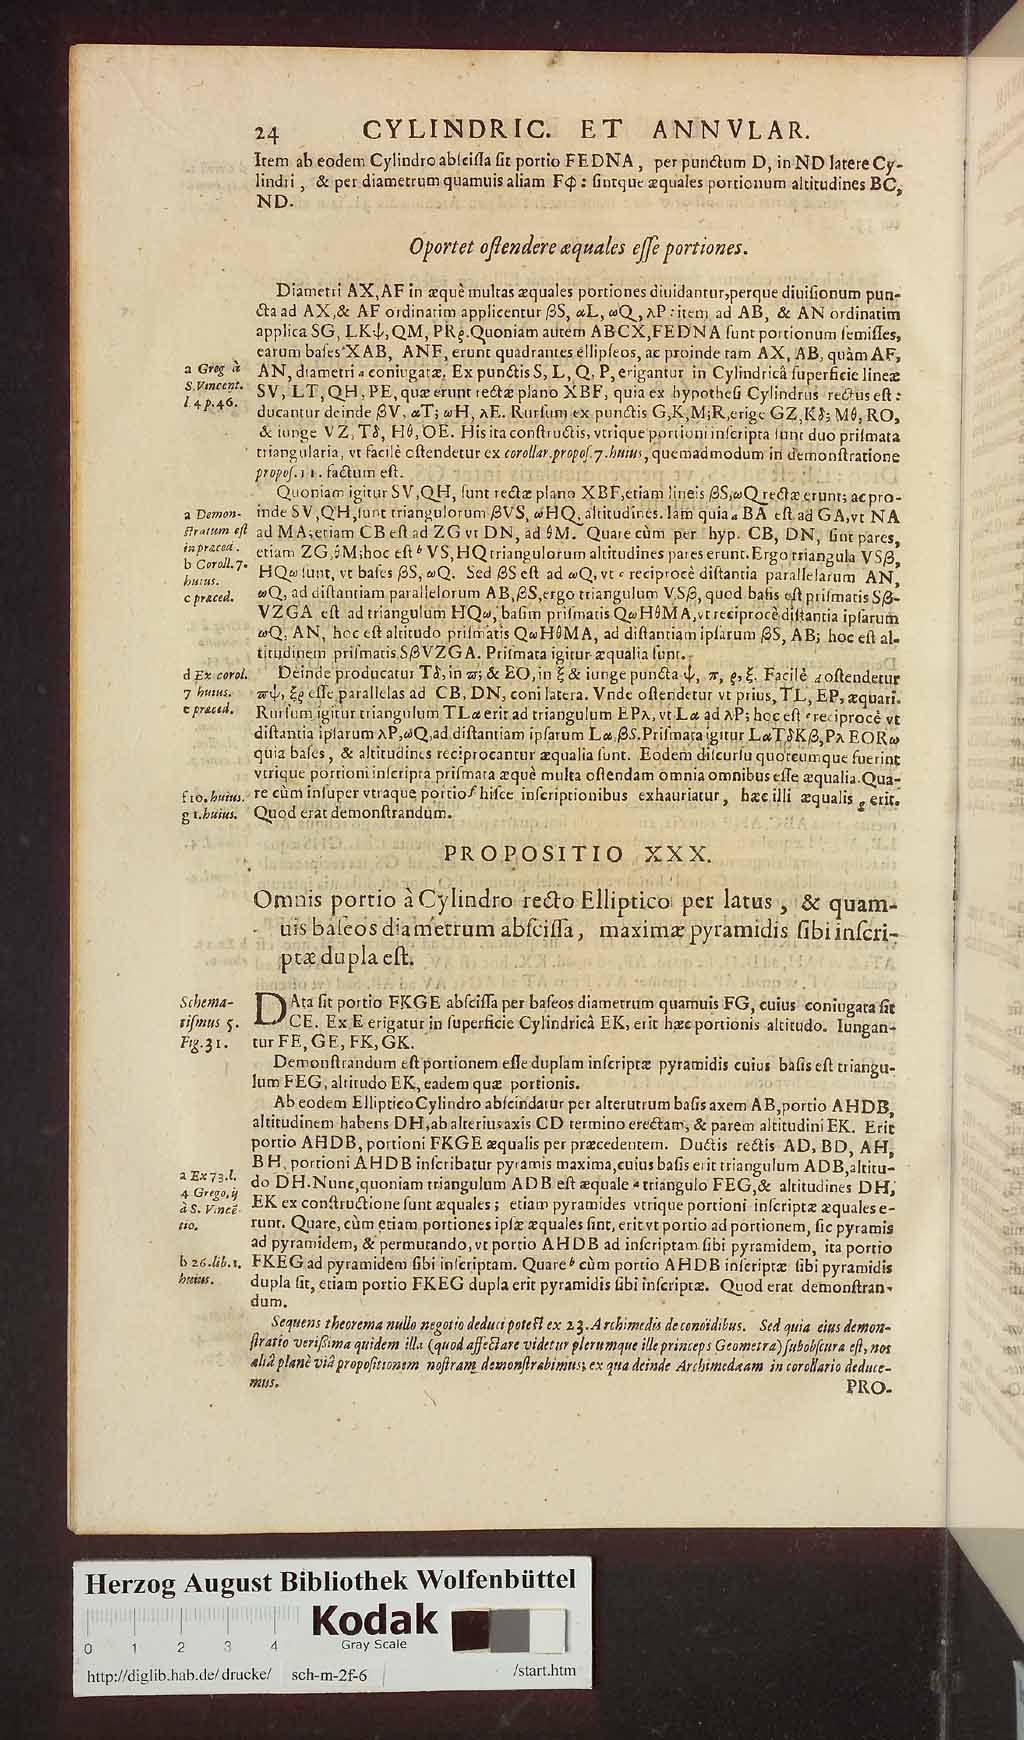 24 CYLINDRIC. ET ANNVLAR.
Item ab eodem Cylindro abſciſſa ſit portio FEDNA, per punctum D, in ND latere Cy-
lindri, & per diametrum quamuis aliam FΦ: ſintque æquales portionum altitudines BC,
ND.
Oportet oſtendere æquales eſſe portiones.
Diametri AX, AF in æquè multas æquales portiones diuidantur, perque diuiſionum pun-
cta ad AX, & AF ordinatim applicentur βS, αL, ωQ, λP: item ad AB, & AN ordinatim
applica SG, LKψ, QM, PRϱ. Quoniam autem ABCX, FEDNA ſunt portionum ſemiſſes,
earum baſes XAB, ANF, erunt quadrantes ellipſeos, ac proinde tam AX, AB, quàm AF,
a Greg à
S. Vincent.
l 4 p. 46.
AN, diametri a coniugatæ. Ex punctis S, L, Q, P, erigantur in Cylindricâ ſuperficie lineæ
SV, LT, QH, PE, quæ erunt rectæ plano XBF, quia ex hypotheſi Cylindrus rectus eſt:
ducantur deinde βV, αT; ωH, λE. Rurſum ex punctis G, K, M; R, erige GZ, Kδ; Mθ, RO,
& iunge VZ, Tδ, Hθ, OE. His ita conſtructis, vtrique portioni inſcripta ſunt duo priſmata
triangularia, vt facilè oſtendetur ex corollar. propoſ. 7. huius, quemadmodum in demonſtratione
propoſ. 11. factum eſt.
Quoniam igitur SV, QH, ſunt rectæ plano XBF, etiam lineis βS, ωQ rectæ erunt; ac pro-
a Demon-
ſtratum eſt
in præced.
b Coroll. 7.
huius.
c præced.
inde SV, QH, ſunt triangulorum βVS, ωHQ altitudines. Iam quia a BA eſt ad GA, vt NA
ad MA; etiam CB eſt ad ZG vt DN, ad θM. Quare cùm per hyp. CB, DN, ſint pares,
etiam ZG, θM; hoc eſt b VS, HQ triangulorum altitudines pares erunt. Ergo triangula VSβ,
HQω ſunt, vt baſes βS, ωQ. Sed βS eſt ad ωQ, vt c reciprocè diſtantia parallelarum AN,
ωQ, ad diſtantiam parallelorum AB, βS, ergo triangulum VSβ, quod baſis eſt priſmatis Sβ-
VZGA eſt ad triangulum HQω, baſim priſmatis QωHθMA, vt reciprocè diſtantia ipſarum
ωQ, AN, hoc eſt altitudo priſmatis QωHθMA, ad diſtantiam ipſarum βS, AB; hoc eſt al-
titudinem priſmatis SβVZGA. Priſmata igitur æqualia ſunt.
d Ex corol.
7 huius.
e præced.
Deinde producatur Tδ, in ϖ; & EO, in ξ & iunge puncta ψ, π, ϱ, ξ. Facilè d oſtendetur
ϖψ, ξϱ eſſe parallelas ad CB, DN, coni latera. Vnde oſtendetur vt prius, TL, EP, æquari.
Rurſum igitur triangulum TLα erit ad triangulum EPλ, vt Lα ad λP; hoc eſt e reciprocè vt
diſtantia ipſarum λP, ωQ, ad diſtantiam ipſarum Lα, βS. Priſmata igitur LαTδKβ, PλEORω
quia baſes, & altitudines reciprocantur æqualia ſunt. Eodem diſcurſu quotcumque fuerint
vtrique portioni inſcripta priſmata æquè multa oſtendam omnia omnibus eſſe æqualia. Qua-
f 10. huius.
g 1. huius.
re cùm inſuper vtraque portio f hiſce inſcriptionibus exhauriatur, hæc illi æqualis g erit.
Quod erat demonſtrandum.
PROPOSITIO XXX.
Omnis portio à Cylindro recto Elliptico per latus, & quam-
uis baſeos diametrum abſciſſa, maximæ pyramidis ſibi inſcri-
ptæ dupla eſt.
Schema-
tiſmus 5.
Fig. 31.
DAta ſit portio FKGE abſciſſa per baſeos diametrum quamuis FG, cuius coniugata ſit
CE. Ex E erigatur in ſuperficie Cylindricâ EK, erit hæc portionis altitudo. Iungan-
tur FE, GE, FK, GK.
Demonſtrandum eſt portionem eſſe duplam inſcriptæ pyramidis cuius baſis eſt triangu-
lum FEG, altitudo EK, eadem quæ portionis.
Ab eodem Elliptico Cylindro abſcindatur per alterutrum baſis axem AB, portio AHDB,
altitudinem habens DH, ab alterius axis CD termino erectam, & parem altitudini EK. Erit
portio AHDB, portioni FKGE æqualis per præcedentem. Ductis rectis AD, BD, AH,
BH, portioni AHDB inſcribatur pyramis maxima, cuius baſis erit triangulum ADB, altitu-
a Ex 73. l.
4 Grego. ij
à S. Vincē-
tio.
do DH. Nunc, quoniam triangulum ADB eſt æquale a triangulo FEG, & altitudines DH,
EK ex conſtructione ſunt æquales; etiam pyramides vtrique portioni inſcriptæ æquales e-
runt. Quare, cùm etiam portiones ipſæ æquales ſint, erit vt portio ad portionem, ſic pyramis
ad pyramidem, & permutando, vt portio AHDB ad inſcriptam ſibi pyramidem, ita portio
b 26. lib. 1.
huius.
FKEG ad pyramidem ſibi inſcriptam. Quare b cùm portio AHDB inſcriptæ ſibi pyramidis
dupla ſit, etiam portio FKEG dupla erit pyramidis ſibi inſcriptæ. Quod erat demonſtran-
dum.
Sequens theorema nullo negotio deduci poteſt ex 23. Archimedis de conoidibus. Sed quia eius demon-
ſtratio veriſſima quidem illa (quod affectare videtur plerumque ille princeps Geometra) ſubobſcura eſt, nos
aliâ planè viâ propoſitionem noſtram demonſtrabimus; ex qua deinde Archimedæam in corollario deduce-
mus.
PRO-
Herzog August Bibliothek Wolfenbüttel
0 1 2 3 4
Kodak
Gray Scale
http://diglib.hab.de/drucke/ sch-m-2f-6 /start.htm